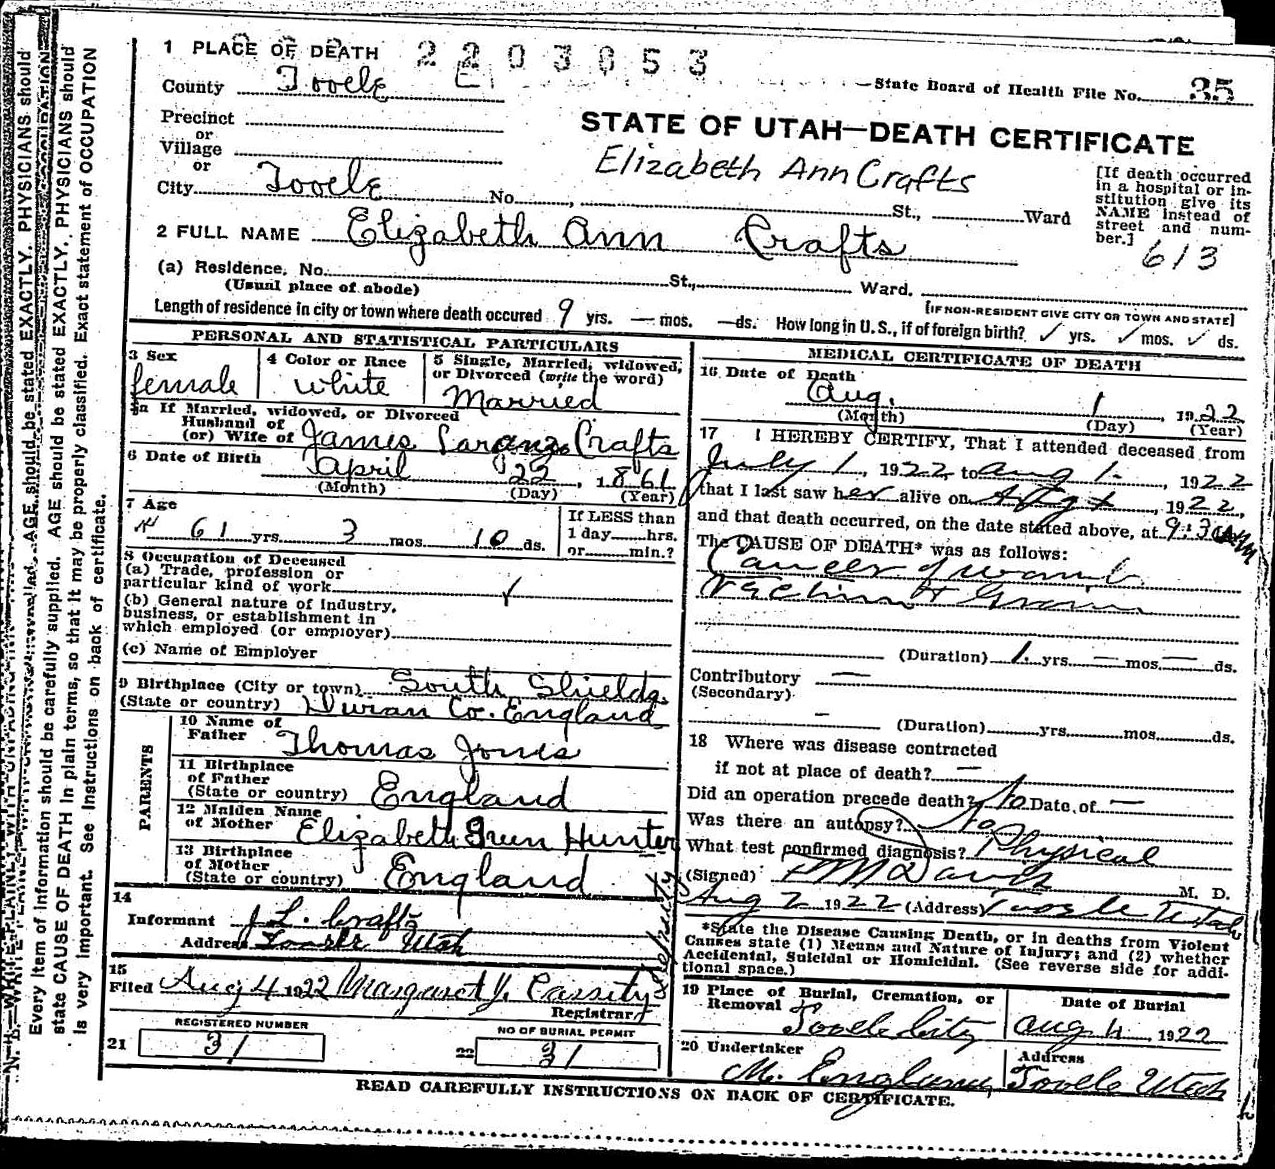 1 PLACE OF DEATH 2203653
County Tooele
State Board of Health File No. 35
Precinct
or
Village
or
City Tooele No. , St., Ward
STATE OF UTAH—DEATH CERTIFICATE
Elizabeth Ann Crafts
[If death occurred
in a hospital or in-
stitution give its
NAME instead of
street and num-
ber.]
613
2 FULL NAME Elizabeth Ann Crafts
(a) Residence, No. St., Ward.
(Usual place of abode)
[IF NON-RESIDENT GIVE CITY OR TOWN AND STATE]
Length of residence in city or town where death occured 9 yrs. — mos. — ds. How long in U.S., if of foreign birth? yrs. mos. ds.
PERSONAL AND STATISTICAL PARTICULARS
3 Sex
female
4 Color or Race
white
5 Single, Married, widowed,
or Divorced (write the word)
Married
5a If Married, widowed, or Divorced
Husband of
(or) Wife of James Crafts
6 Date of Birth April 22, 1861
(Month) (Day) (Year)
7 Age
61 yrs 3 mos 10 ds.
If LESS than
1 day hrs.
or min.?
8 Occupation of Deceased
(a) Trade, profession or
particular kind of work
(b) General nature of industry,
business, or establishment in
which employed (or employer)
(c) Name of Employer
9 Birthplace (City or town) South Shields,
(State or country) Duran Co. England
PARENTS
10 Name of
Father Thomas Jones
11 Birthplace
of Father
(State or country) England
12 Maiden Name
of Mother Elizabeth Grun Hunter
13 Birthplace
of Mother
(State or country) England
14
Informant J. L. Crafts
Address Tooele Utah
15
Filed Aug 4 1922 Margaret J. Cassity
Registrar
REGISTERED NUMBER
21 31
NO OF BURIAL PERMIT
22 31
MEDICAL CERTIFICATE OF DEATH
16 Date of Death
Aug. 1, 1922
(Month) (Day) (Year)
17 I HEREBY CERTIFY, That I attended deceased from
July 1, 1922 to Aug 1, 1922
that I last saw her alive on , 1922,
and that death occurred, on the date stated above, at 9:30 am
The CAUSE OF DEATH* was as follows:
Cancer of womb
rectum + Groin
(Duration) 1 yrs. — mos. — ds.
Contributory —
(Secondary)
— (Duration) yrs. mos. ds.
18 Where was disease contracted
if not at place of death? —
Did an operation precede death? No Date of —
Was there an autopsy? No
What test confirmed diagnosis? Physical
(Signed) M. D.
Aug 2 1922 (Address) Tooele Utah
*State the Disease Causing Death, or in deaths from Violent
Causes state (1) Means and Nature of Injury; and (2) whether
Accidental, Suicidal or Homicidal. (See reverse side for addi-
tional space.)
19 Place of Burial, Cremation, or
Removal
Tooele City
Date of Burial
Aug 4, 1922
20 Undertaker
M. England,
Address
Tooele Utah
READ CAREFULLY INSTRUCTIONS ON BACK OF CERTIFICATE.
Every item of information should be carefully supplied. AGE should be stated EXACTLY. PHYSICIANS should
state CAUSE OF DEATH in plain terms, so that it may be properly classified. Exact statement of OCCUPATION
is very important. See Instructions on back of certificate.